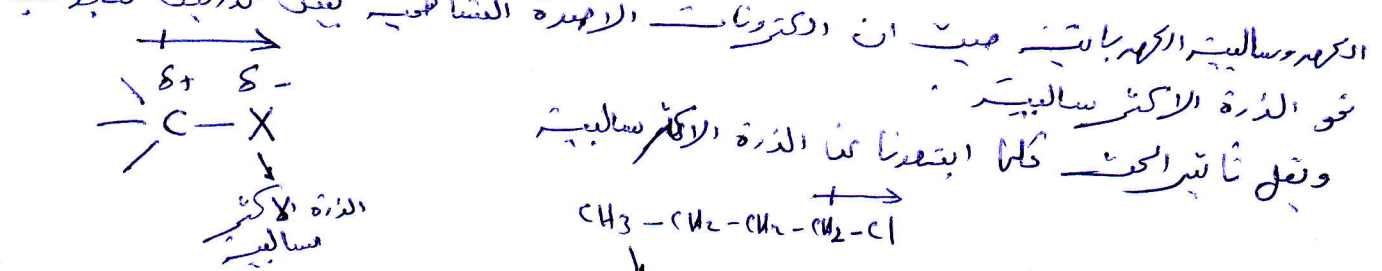 الكهروسالبية الكهربائية حيث ان الكترونات الاصرة
نحو الذرة الاكثر سالبية .
ويقل تأثير الحث كلما ابتعدنا عن الذرة الاكثر سالبية
δ+ δ-
C – X
الذرة الاكثر
سالبية
CH3 – CH2 – CH2 – CH2 – Cl